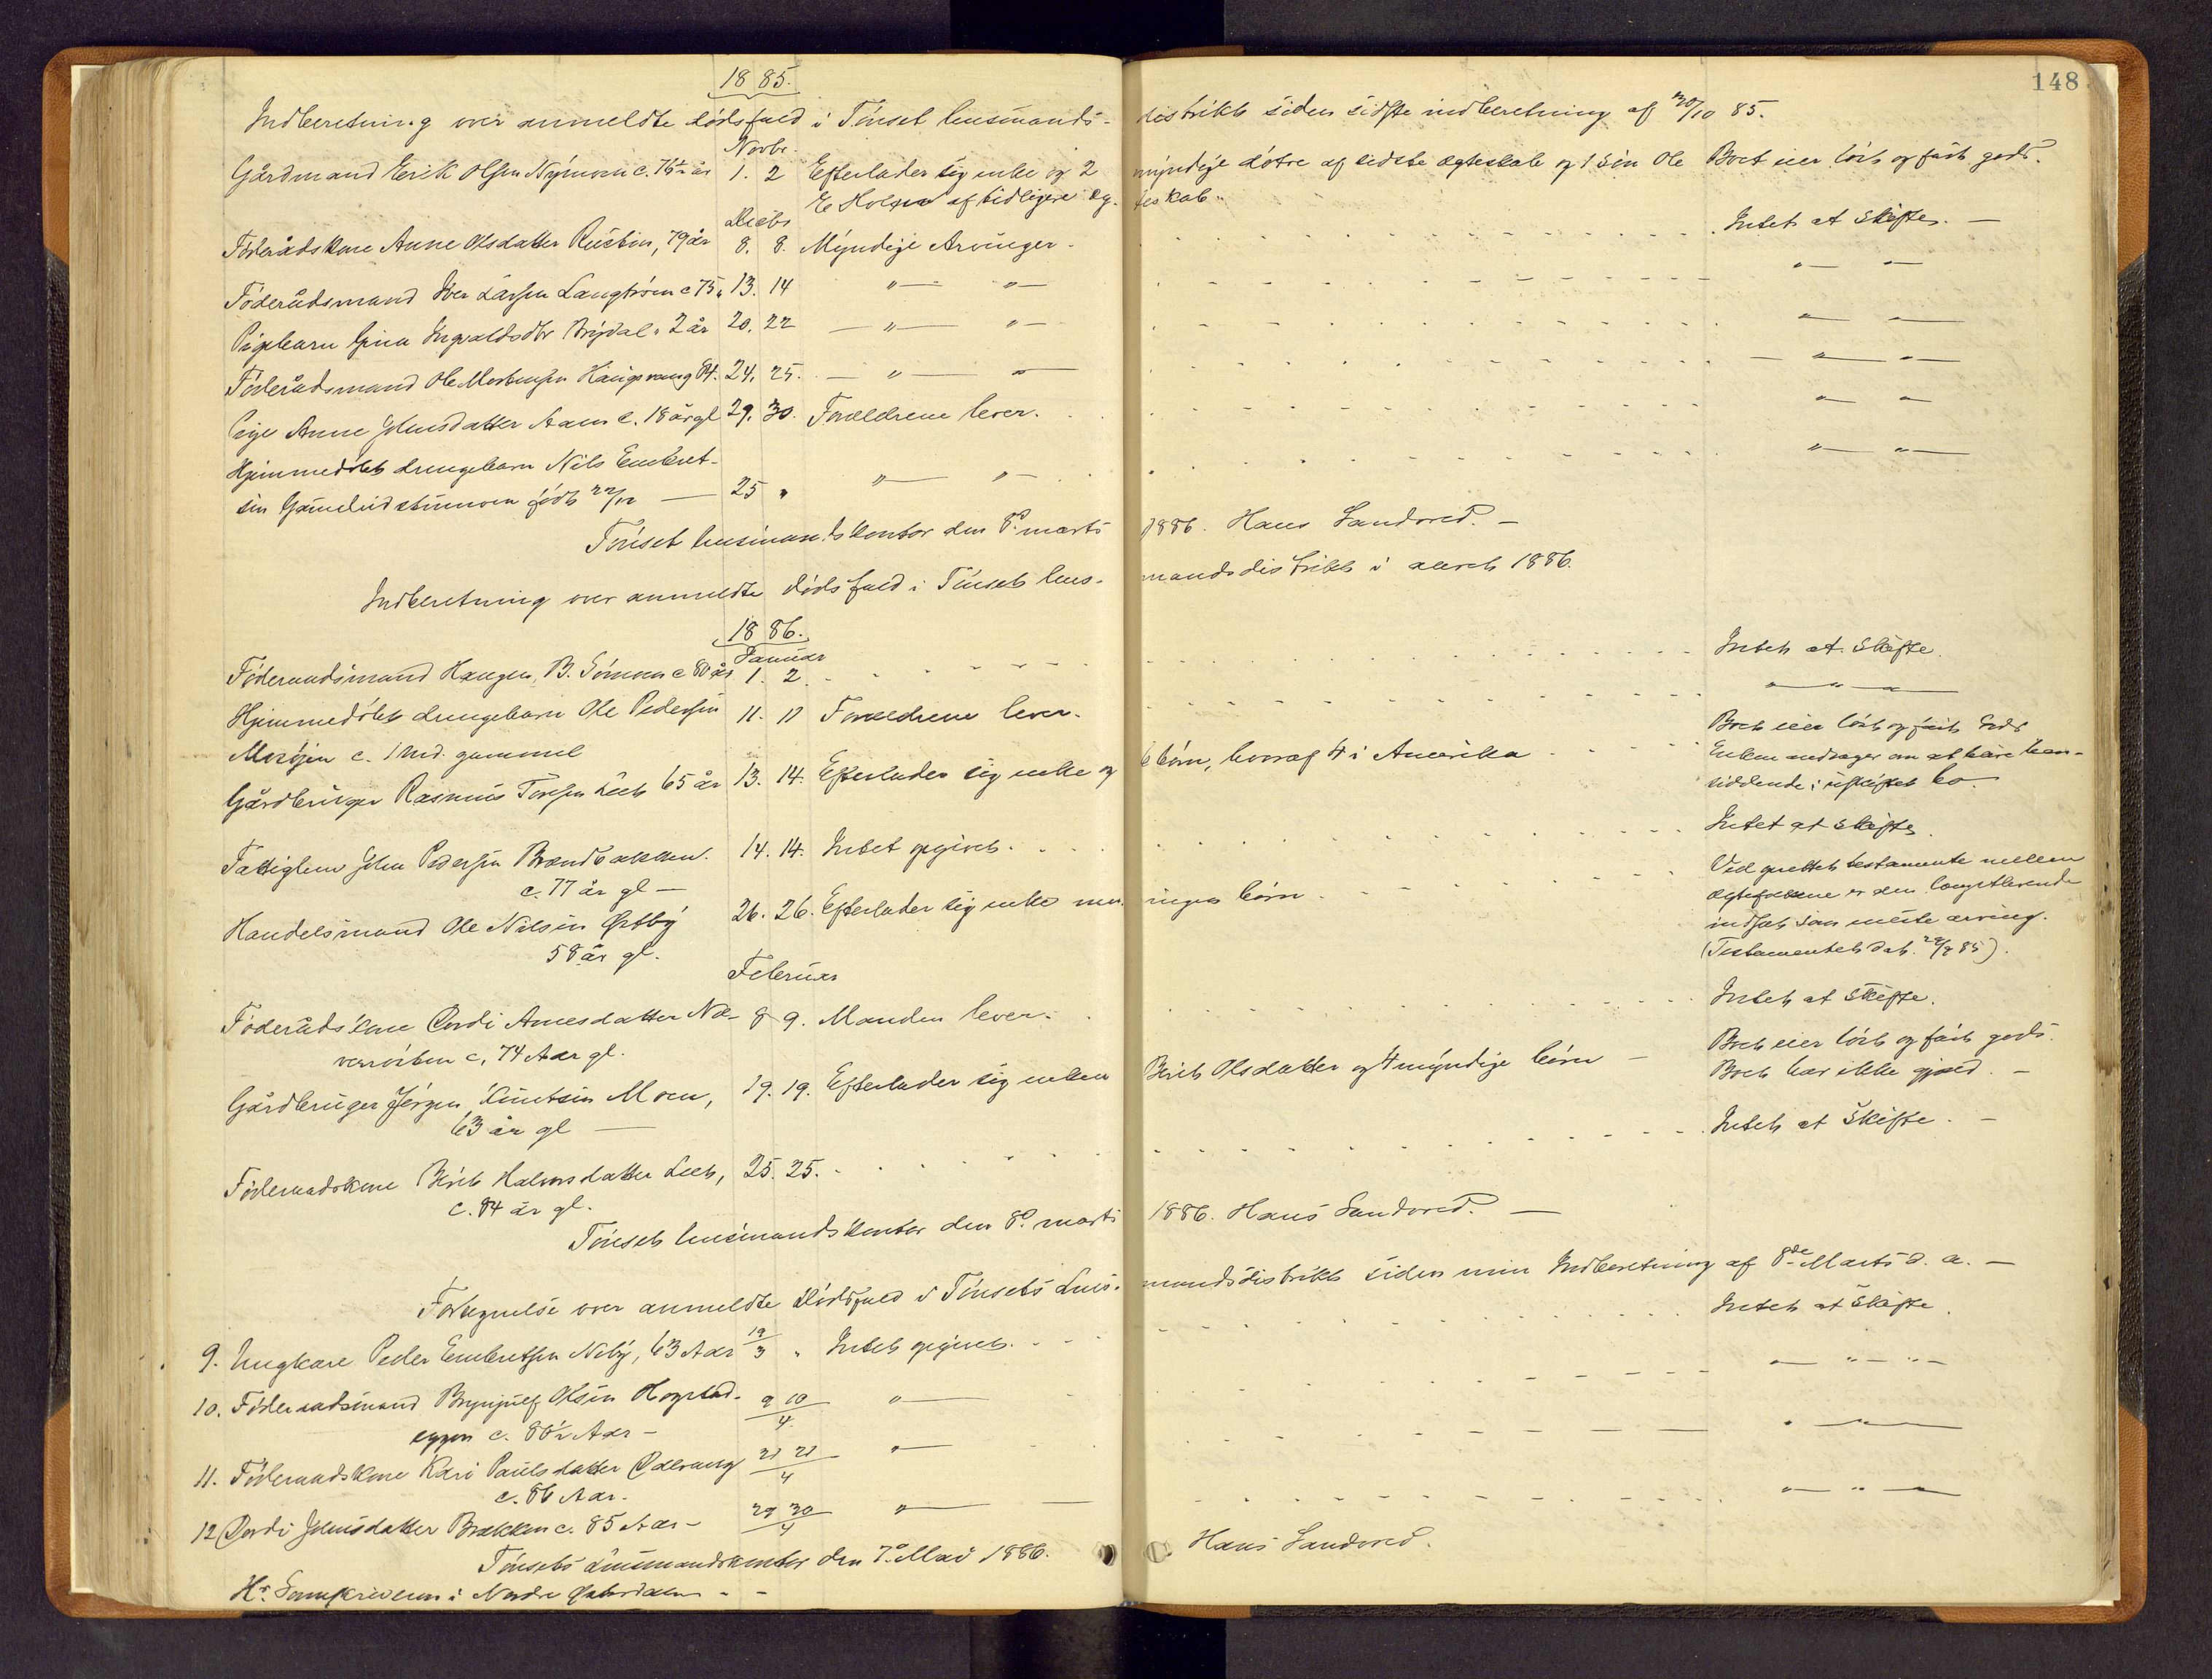 148
1885.
Indberetning over anmeldte dødsfald i Tønset lensmands- distrikt siden sidste indberetning af 30/10 85.
Novbr.
Gårdmand Erik Olsen Nymoen c. 76½ år 1. 2 Efterlader sig enke og 2 myndige døtre af sidste ægteskab og 1 søn Ole Boet eier løst og fast gods.
E Holsen af tidligere æg- teskab.
Decbr
Føderådskone Anne Olsdatter Rusten, 79 år 8. 8. Myndige Arvinger. Intet at Skifte. —
Føderådsmand Iver Larsen Langtrøen c 75 " 13. 14 " — " — " — " —
Pigebarn Gina Ingvaldsdtr Brydal " 2 år 20. 22 — " — " — " — " —
Føderådsmand Ole Mortensen Haugsvang 84. 24. 25. — " — " — — " — " —
Pige Anne Johnsdatter Aaen c. 18 år gl 29. 30. Forældrene lever. " — " —
Hjemmedøbt drengebarn Nils Embret-
sen Gammeludstumoen født 22/12 — 25 " " — " — " — " —
Tønset lensmandskontor den 8de marts 1886. Hans Sandvred. —
Indberetning over anmeldte dødsfald i Tønset lens- mandsdistrikt i aaret 1886.
1886.
Januar
Føderaadsmand Haagen B. Tomoen c 80 år 1. 2. Intet at Skifte.
Hjemmedøbt drengebarn Ole Pedersen 11. 11 Forældrene lever. " — " —
Mosøjen c. 1 md. gammel
Gårdbruger Rasmus Toresen Leet 65 år 13. 14. Efterlader sig enke og 6 børn, hvoraf 4 i Amerika Boet eier løst og fast Gods
Enken andrager om at være hen-
siddende i uskiftet bo.
Fattiglem John Pedersen Brændbakken. 14. 14. Intet opgivet. Intet at skifte.
c. 77 år gl —
Handelsmand Ole Nilsen Østby 26. 26. Efterlader sig enke men ingen børn. Ved oprettet testamente mellem
58 år gl. ægtefolkene er den længstlevende
indsat som eneste arving.
(Testamentet dat. 22/8 85).
Februar
Føderådskone Gordi Arnesdatter Næ- 8 9. Manden lever. Intet at Skifte.
verrosten c. 74 Aar gl.
Gårdbruger Jørgen Knutsen Moen, 19. 19. Efterlader sig enken Berit Olsdatter og 4 myndige børn — Boet eier løst og fast gods.
63 år gl — Boet har ikke gjæld. —
Føderaadskone Berit Halvorsdatter Leet, 25. 25. Intet at Skifte. —
c. 84 år gl.
Tønset lensmandskontor den 8de marts 1886. Hans Sandvred. —
Fortegnelse over anmeldte Dødsfald i Tønsets Lens- mandsdistrikt siden min Indberetning af 8de Marts d. a. —
9. Ungkarl Peder Embretsen Neby, 63 Aar 19/3 " Intet opgivet. Intet at Skifte.
10. Føderaadsmand Brynjulf Olsen Hogstad- 9 10/4. " — " — " — " —
eggen c. 86½ Aar —
11. Føderaadskone Kari Paulsdatter Ødevang 21 21/4 " — " — " —
c. 86 Aar.
12 Gordi Johnsdatter Brækken c. 85 Aar — 29 30/4 " — " — " —
Tønsets Lensmandskontor den 7de Mai 1886. Hans Sandvred.
Hr. Sorenskriveren i Nordre Østerdalen - -